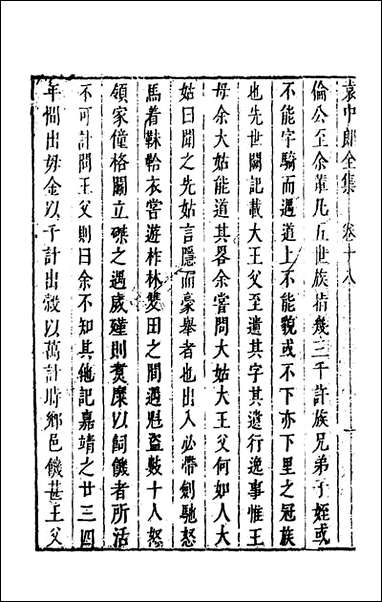 袁中郎全集 卷十八
倫公至余輩凡五世族指幾三千許族兄弟子姪或
不能字騎而遇道上不能貌或不下亦下里之冠族
也先世闕記載大王父至遺其字其遺行逸事惟王
母余大姑能道其畧余嘗問大姑大王父何如人大
姑曰聞之先姑言隱而豪舉者也出入必帶劍馳怒
馬着靺韐衣嘗遊柞林雙田之間遇魁盜數十人怒
領家僮格鬭立磔之遇歲殣則煑糜以飼饑者所活
不可計問王父則曰余不知其他記嘉靖之廿三四
年間出母金以千計出穀以萬計時鄉邑饑甚王父